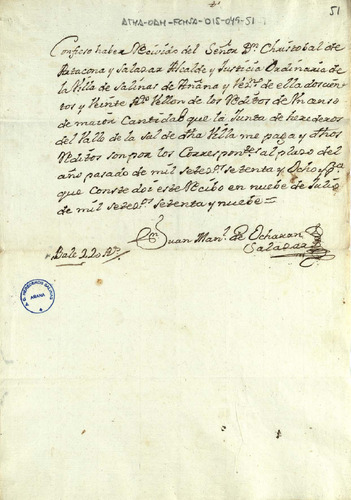 51
ATHA-DAH-FCHSA-015-049-51
Confieso haber Rezivido del Señor Dn. Christobal de
Artacona y Salazar Alcalde y Justicia Ordinaria de
la Villa de Salinas de Añana y Vezº. de ella doscien
tos y Veinte Rs. Vellon de los Reditos de Un censo
de maior Cantidad que la Junta de herederos
del Valle de la Sal de dha Villa me paga y dhos
Reditos son por los Correspontes. al plazo del
año pasado de mil setezs. setenta y Ocho y Pa.
que Conste doi este Rezibo en nuebe de Julio
de mil setezs. setenta y nuebe =
Juan Manl. de Echavarri
Salazar
Vale 220 Rs.
ANANA